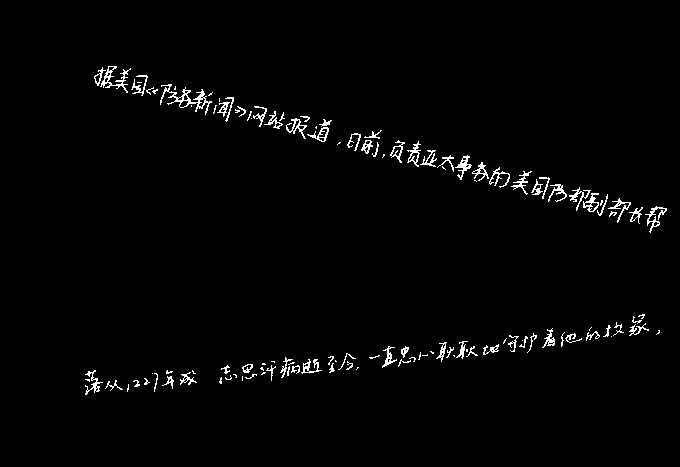 据美国《防务新闻》网站报道，日前，负责亚太事务的美国防部副部长帮
落从1227年成 志思汗病逝至今，一直忠心耿耿地守护着他的故冢，